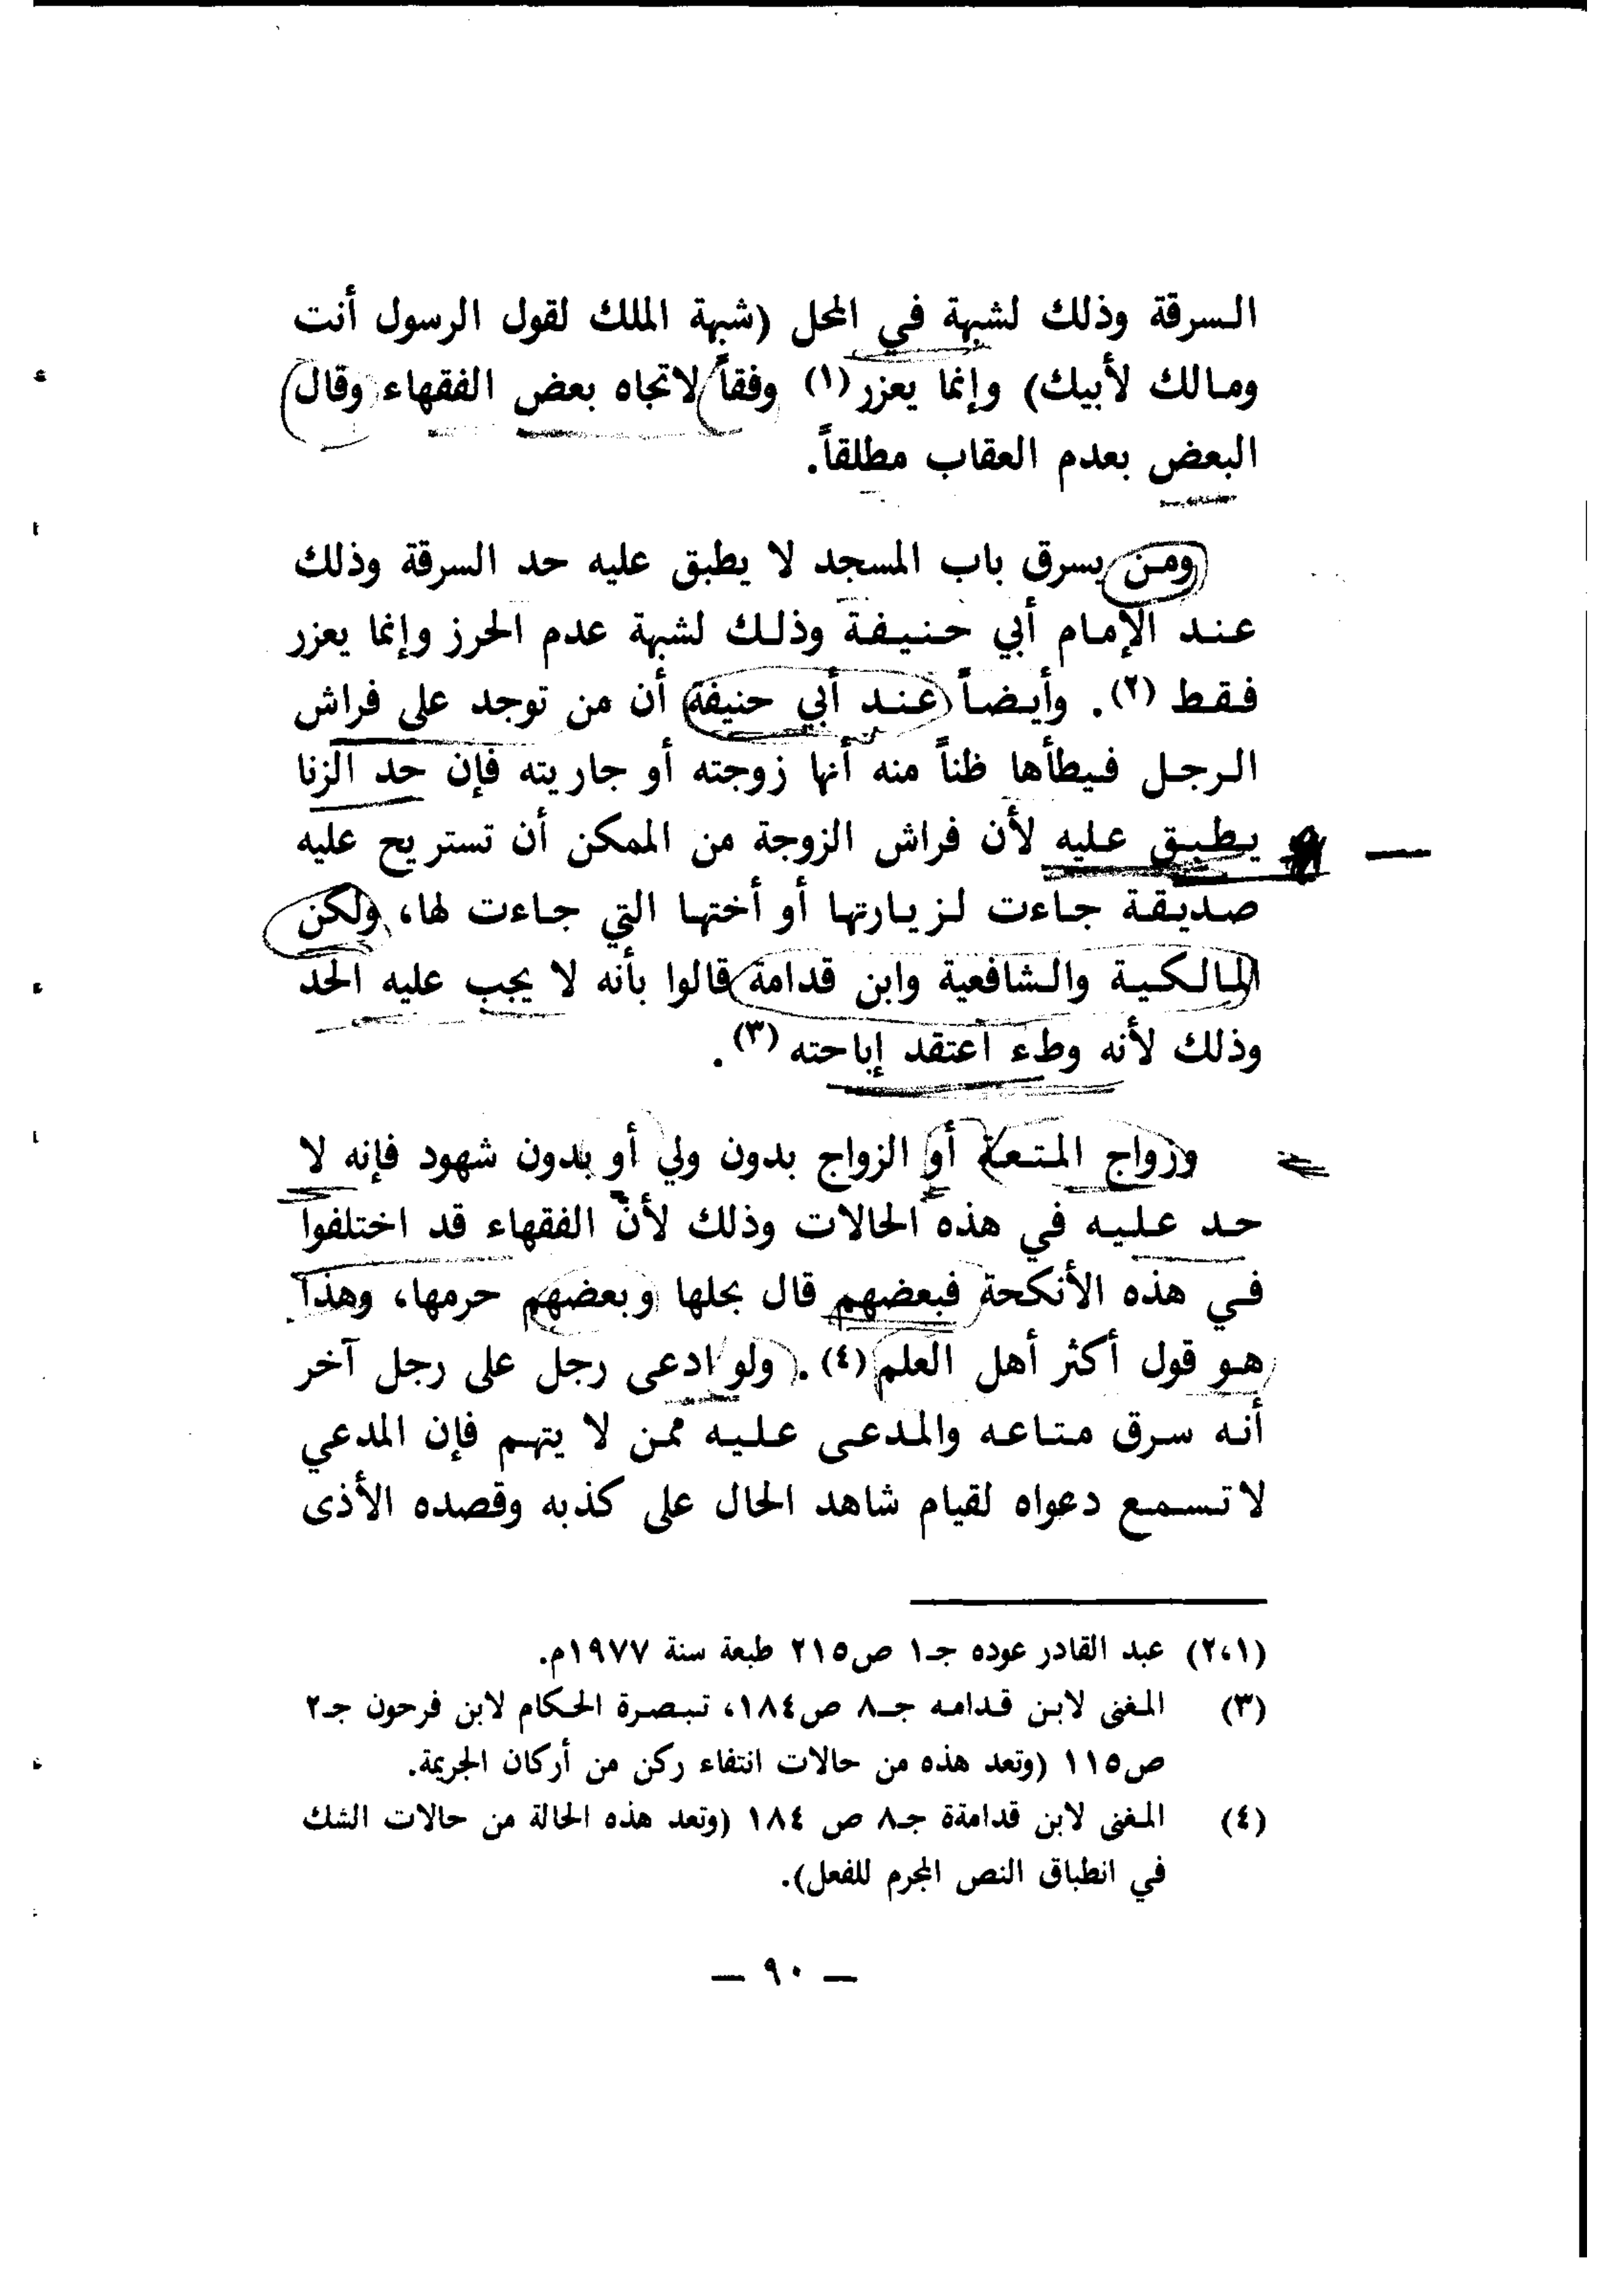 السرقة وذلك لشبهة في المحل (شبهة الملك لقول الرسول أنت
ومالك لأبيك) وإنما يعزر (١) وفقاً لاتجاه بعض الفقهاء وقال
البعض بعدم العقاب مطلقاً.
ومن يسرق باب المسجد لا يطبق عليه حد السرقة وذلك
عند الإمام أبي حنيفة وذلك لشبهة عدم الحرز وإنما يعزر
فقط (٢). وأيضاً عند أبي حنيفة أن من توجد على فراش
الرجل فيطأها ظناً منه أنها زوجته أو جاريته فإن حد الزنا
يطبق عليه لأن فراش الزوجة من الممكن أن تستريح عليه
صديقة جاءت لزيارتها أو أختها التي جاءت لها، ولكن
المالكية والشافعية وابن قدامة قالوا بأنه لا يجب عليه الحد
وذلك لأنه وطء اعتقد إباحته (٣).
وزواج المتعة أو الزواج بدون ولي أو بدون شهود فإنه لا
حد عليه في هذه الحالات وذلك لأن الفقهاء قد اختلفوا
في هذه الأنكحة فبعضهم قال بحلها وبعضهم حرمها، وهذا
هو قول أكثر أهل العلم (٤). ولو ادعى رجل على رجل آخر
أنه سرق متاعه والمدعى عليه ممن لا يتهم فإن المدعي
لا تسمع دعواه لقيام شاهد الحال على كذبه وقصده الأذى
(٢،١) عبد القادر عوده جـ١ ص٢١٥ طبعة سنة ١٩٧٧م.
(٣) المغنى لابن قدامه جـ٨ ص١٨٤، تبصرة الحكام لابن فرحون جـ٢
ص١١٥ (وتعد هذه من حالات انتفاء ركن من أركان الجريمة.
(٤) المغنى لابن قدامةة جـ٨ ص ١٨٤ (وتعد هذه الحالة من حالات الشك
في انطباق النص المجرم للفعل).
— ٩٠ —